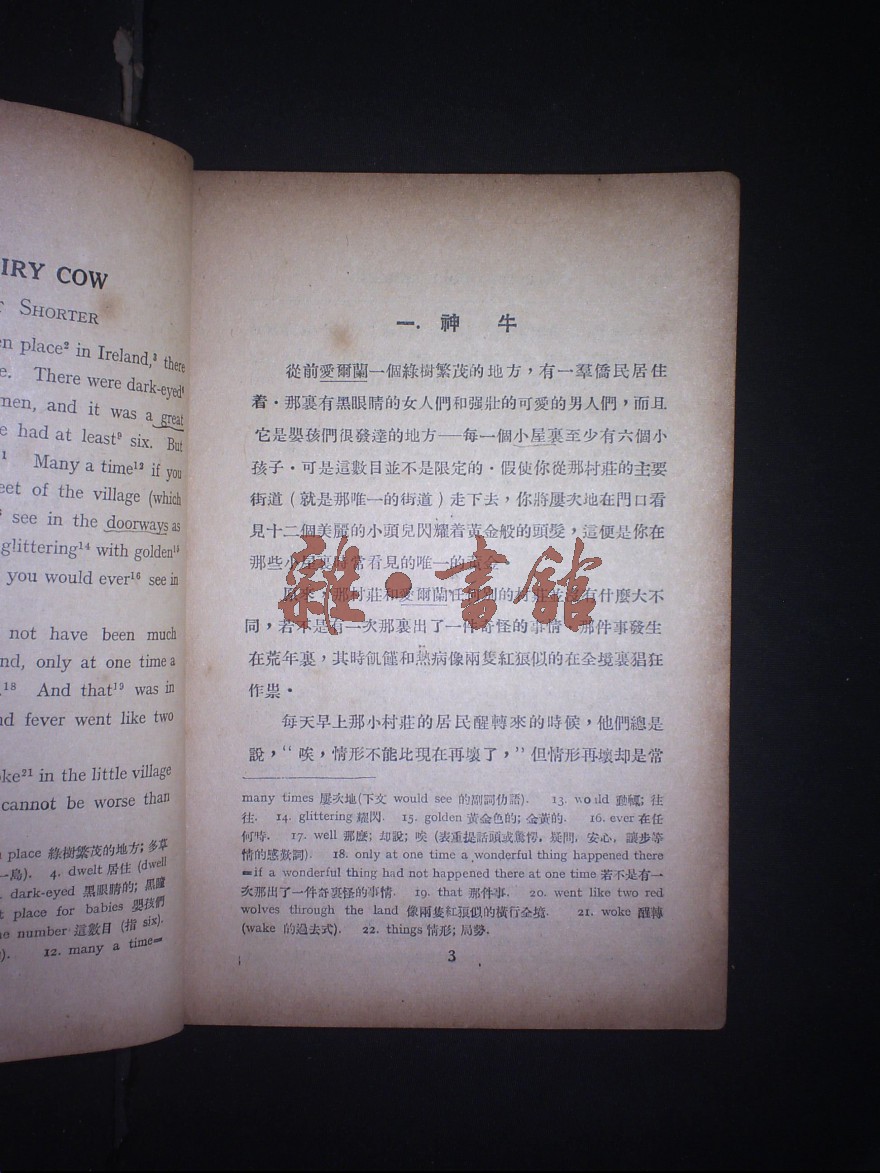 IRY COW
SHORTER
en place² in Ireland,³ there
e. There were dark-eyed⁶
men, and it was a great
e had at least⁹ six. But
Many a time¹² if you
eet of the village (which
see in the doorways as
glittering¹⁴ with golden¹⁵
you would ever¹⁶ see in
not have been much
nd, only at one time a
.¹⁸ And that¹⁹ was in
nd fever went like two
oke²¹ in the little village
cannot be worse than
place 綠樹繁茂的地方; 多草
一島). 4. dwelt 居住 (dwell
dark-eyed 黑眼睛的; 黑瞳
t place for babies 嬰孩們
he number 這數目 (指 six).
12. many a time=
一. 神 牛
從前愛爾蘭一個綠樹繁茂的地方，有一羣僑民居住
着．那裏有黑眼睛的女人們和强壯的可愛的男人們，而且
它是嬰孩們很發達的地方──每一個小屋裏至少有六個小
孩子．可是這數目並不是限定的．假使你從那村莊的主要
街道 (就是那唯一的街道) 走下去，你將屢次地在門口看
見十二個美麗的小頭兒閃耀着黃金般的頭髮，這便是你在
那些小屋裏時常看見的唯一的黃金．
原來，那村莊和愛爾蘭任何別的村莊並沒有什麼大不
同，若不是有一次那裏出了一件奇怪的事情．那件事發生
在荒年裏，其時飢饉和熱病像兩隻紅狼似的在全境裏猖狂
作祟．
每天早上那小村莊的居民醒轉來的時候，他們總是
說，“唉，情形不能比現在再壞了，”但情形再壞却是常
many times 屢次地(下文 would see 的副詞仂語). 13. would 動輒; 往
往. 14. glittering 耀閃. 15. golden 黃金色的; 金黃的. 16. ever 在任
何時. 17. well 那麼; 却說; 唉 (表重提話頭或驚愕, 疑問, 安心, 讓步等
情的感歎詞). 18. only at one time a wonderful thing happened there
=if a wonderful thing had not happened there at one time 若不是有一
次那出了一件奇裏怪的事情. 19. that 那件事. 20. went like two red
wolves through the land 像兩隻紅狼似的橫行全境. 21. woke 醒轉
(wake 的過去式). 22. things 情形; 局勢.
3
雜·書館